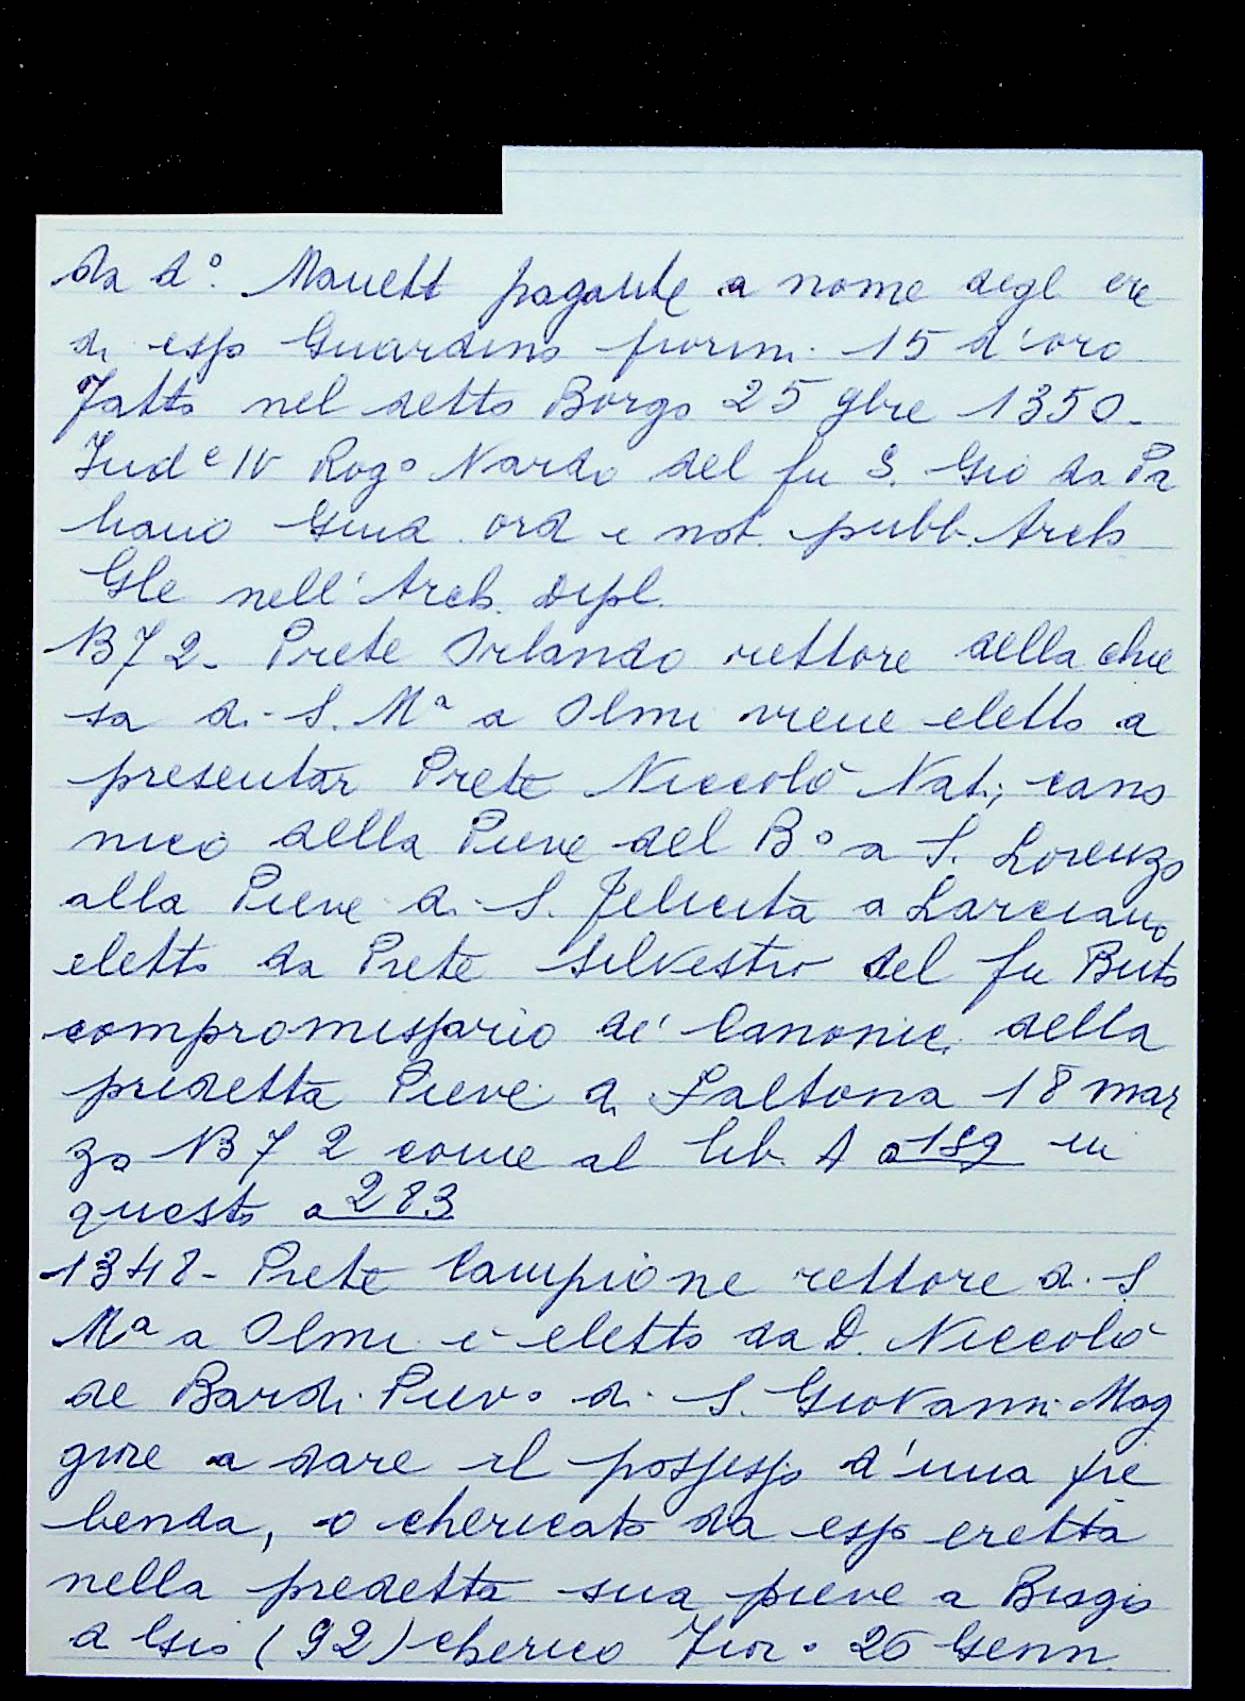 da d°. Manett pagante a nome degl ere
di esso Guardino fiorini 15 d'oro
Fatto nel detto Borgo 25 9bre 1350.
Ind e IV Rog° Nardo del fu S. Gio da Pa
hano Giud ord e not. pubb. Arch
Gle nell'Arch. Dipl.
1372. Prete Orlando rettore della chie
sa di S. Mª a Olmi viene eletto a
presentar Prete Niccolò Nati, cano
nico della Pieve del B° a S. Lorenzo
alla Pieve di S. Felicita a Larciano
eletto da Prete Silvestro del fu Buto
compromissario de' Canonici della
predetta Pieve di Faltona 18 mar
zo 1372 come al lib. A a 189 in
questo a 283
1348- Prete Campione rettore di S
Mª a Olmi è eletto da D. Niccolò
de Bardi Piev° di S. Giovanni Mag
giore a dare il possesso d'una pre
benda, o chericato da esso eretta
nella predetta sua pieve a Biagio
di Gio (92) cherico Fior° 26 Genn.